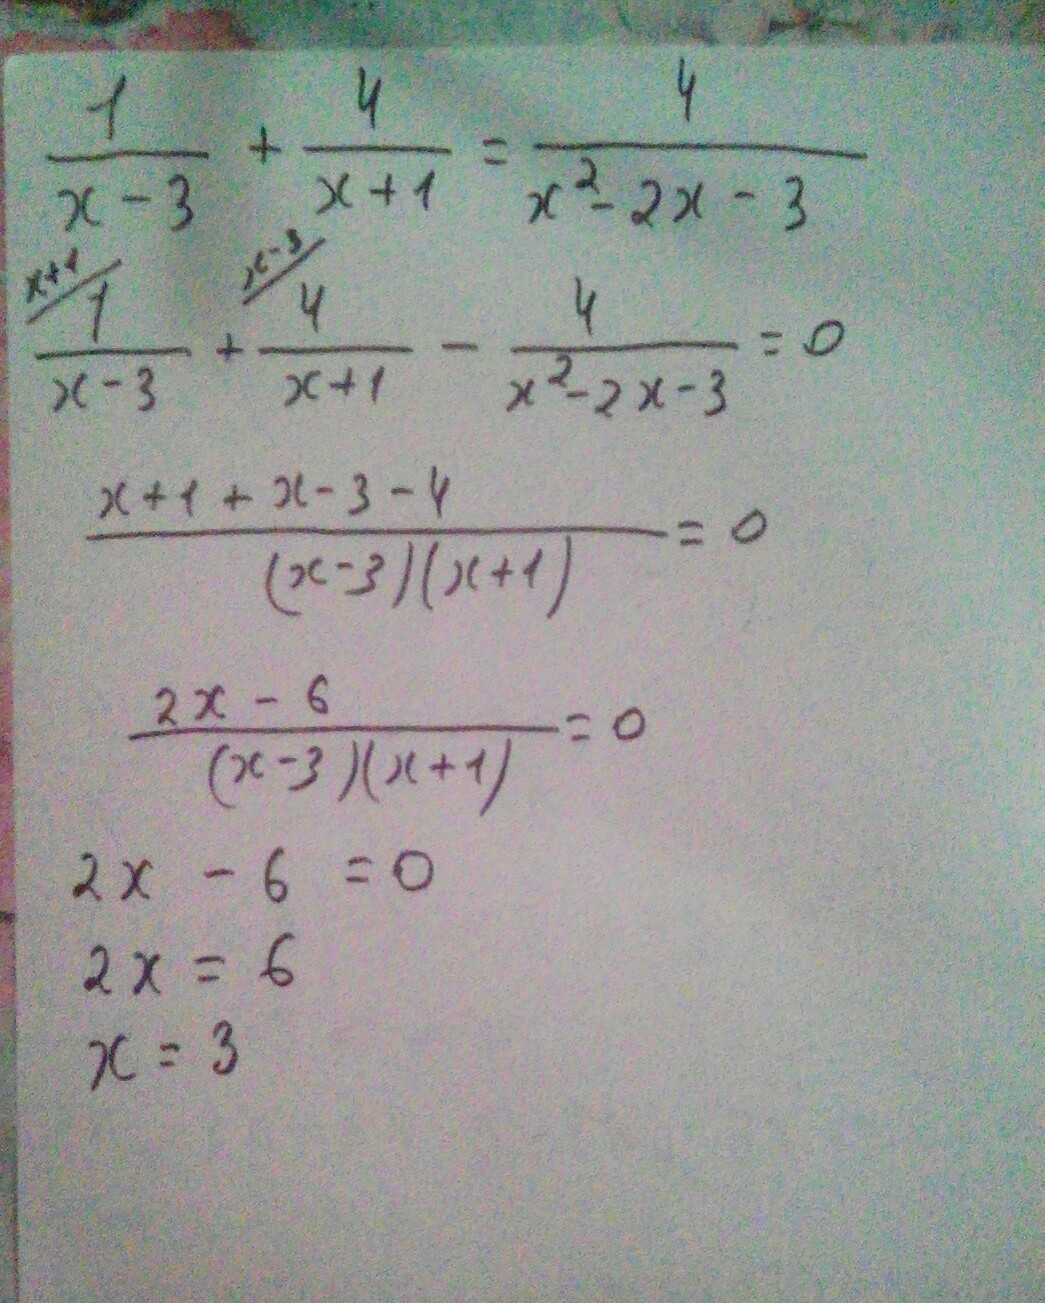 1/(x-3) + 4/(x+1) = 4/(x²-2x-3)
x+1/ 1/(x-3) + x-3/ 4/(x+1) - 4/(x²-2x-3) = 0
(x+1+x-3-4)/((x-3)(x+1)) = 0
(2x-6)/((x-3)(x+1)) = 0
2x - 6 = 0
2x = 6
x = 3